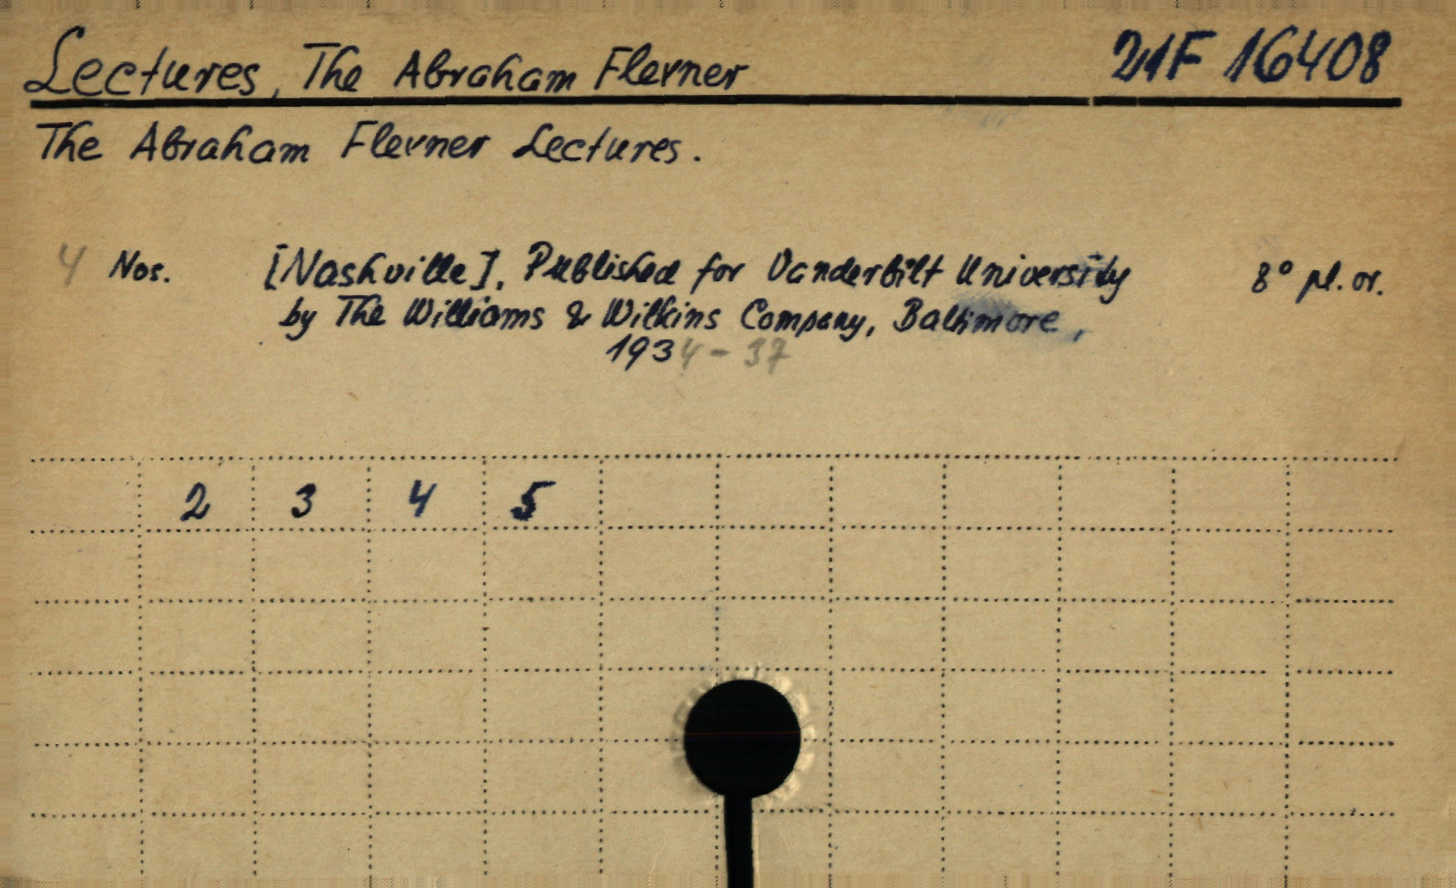 Lectures, The Abraham Flexner 21F 16408
The Abraham Flexner Lectures.
4 Nos. [Nashville], Published for Vanderbilt University 8° pl. or.
by The Williams & Wilkins Company, Baltimore,
1934-37
2 3 4 5